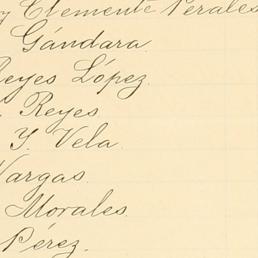 y Clemente Perales
Gándara.
Reyes López.
Reyes
Y. Vela.
Vargas.
Morales.
Pérez.